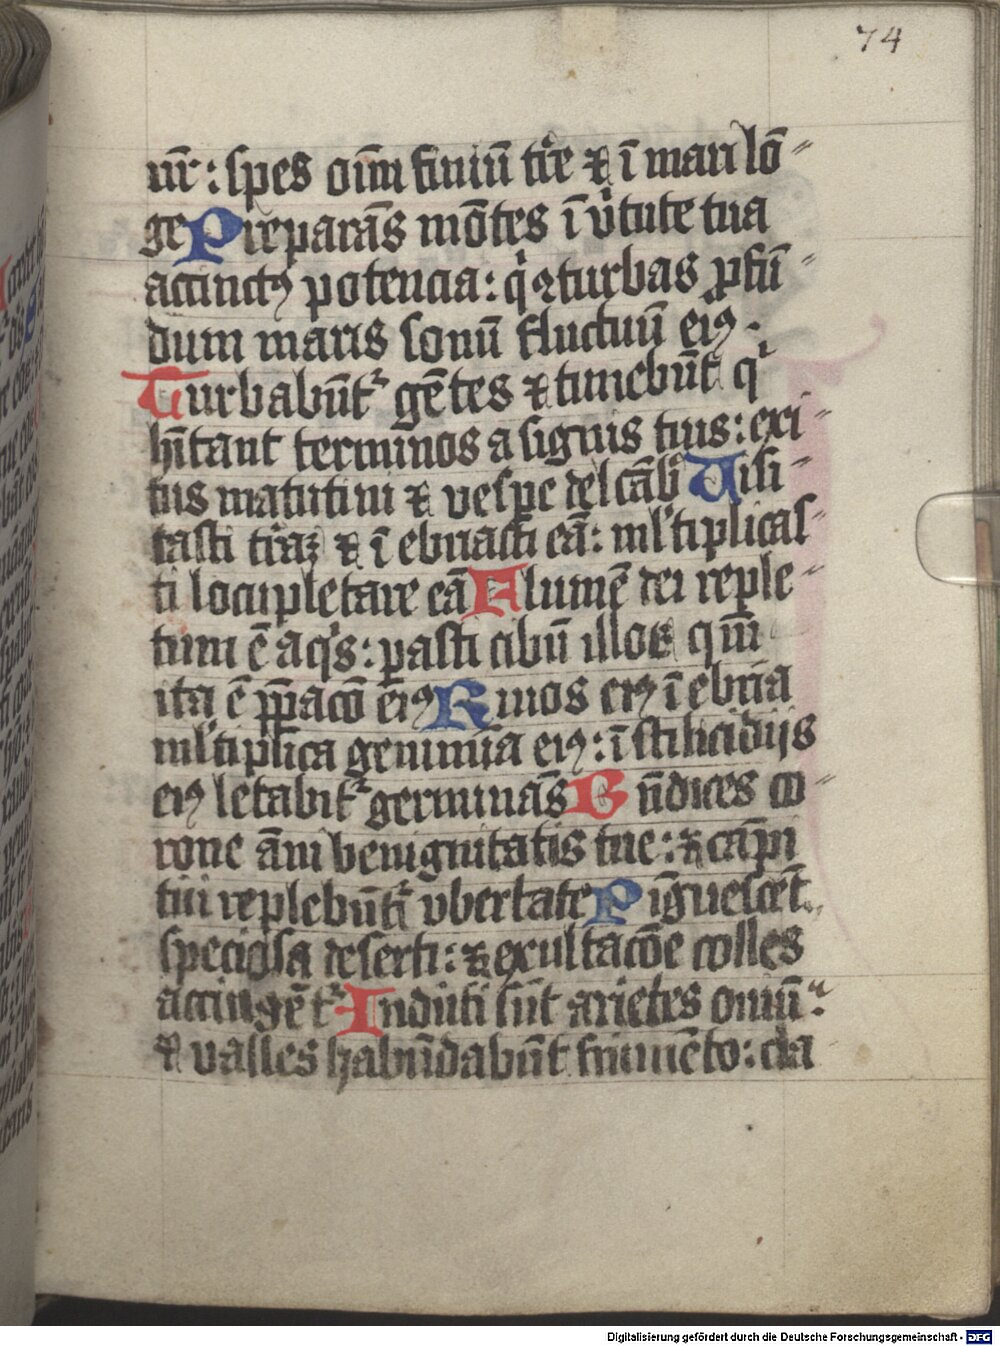 74
nr̄: spes oīm finiū tr̄e ⁊ ī mari lō
ge Preparās mōtes ī v̓tute tua
accinctꝰ potencia: q̓ ꝯturbas ꝓfū
dum maris sonū fluctuū eiꝰ.
Turbabūt᷑ gētes ⁊ timebūt qͥ
hītant terminos a signis tuis: exi
tus matutini ⁊ vespe delcāb̓ Uisi
tasti tr̄aꝫ ⁊ ī ebriasti eā: ml̓tiplicas
ti locupletare eā Flumē dei reple
tum ē aqͥs: parasti cibū illoꝝ qm̄
ita ē p̄paco eiꝰ Riuos eiꝰ ī ebria
ml̓tiplica genimīa eiꝰ: ī stilicidijs
eiꝰ letabit᷑ germinās Bn̄dices co
rone āni benignitatis tue: ⁊ cāpi
tui replebūt᷑ vbertate Pīguescēt
speciosa deserti: ⁊ exultacōe colles
accingēt᷑ Induti sūt arietes oviū:
⁊ valles habūdabūt frumēto: cla
Digitalisierung gefördert durch die Deutsche Forschungsgemeinschaft - DFG